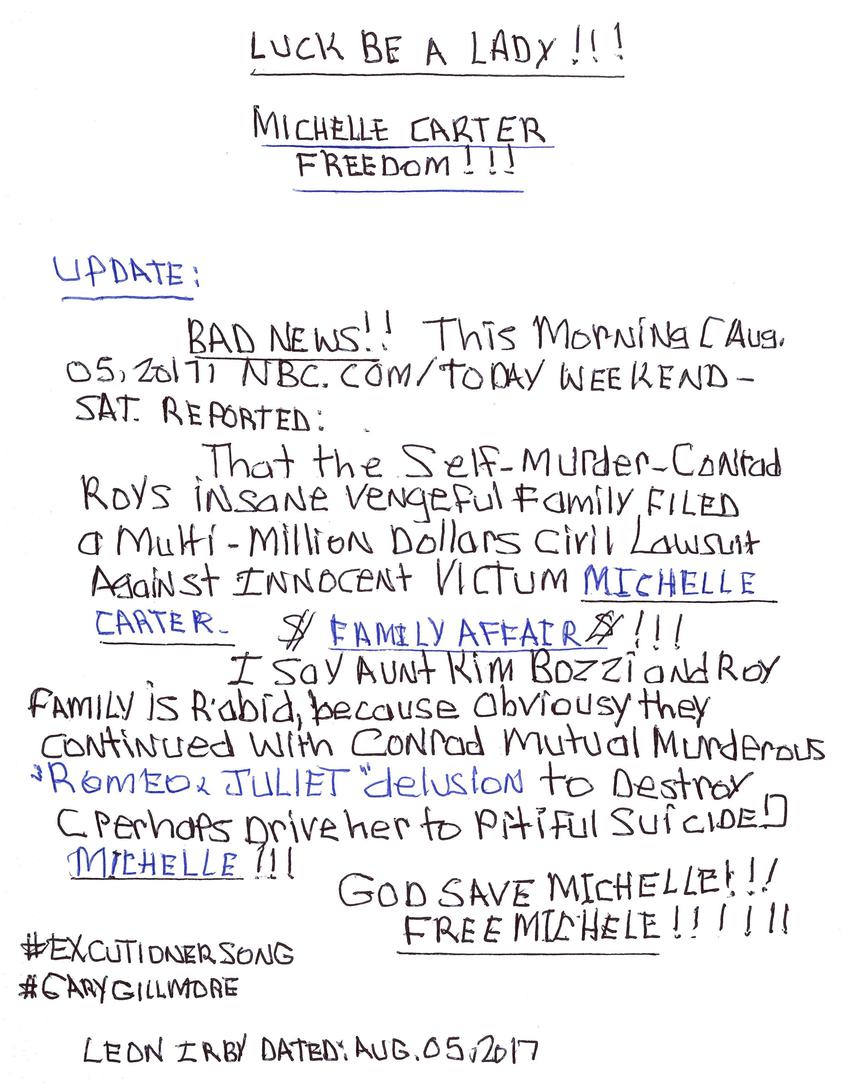 LUCK BE A LADY !!!
MICHELLE CARTER
FREEDOM!!!
UPDATE:
BAD NEWS!! This Morning [Aug.
05, 2017] NBC.COM/TODAY WEEKEND-
SAT. REPORTED:
That the Self-Murder-Conrad
Roys insane vengeful Family FILED
a Multi-Million Dollars Civil Lawsuit
Against INNOCENT VICTUM MICHELLE
CARTER- $ FAMILY AFFAIR $ !!!
I say AUNT Kim Bozzi and Roy
FAMILY is Rabid, because obviousy they
continued with Conrad Mutual Murderous
"ROMEO & JULIET" delusion to Destroy
[Perhaps Drive her to Pitiful SuiCIDE!]
MICHELLE !!!
GOD SAVE MICHELLE!!!
FREE MICHELE!!!!!!
#EXCUTIONERSONG
#GARYGILLMORE
LEON IRBY DATED: AUG. 05, 2017